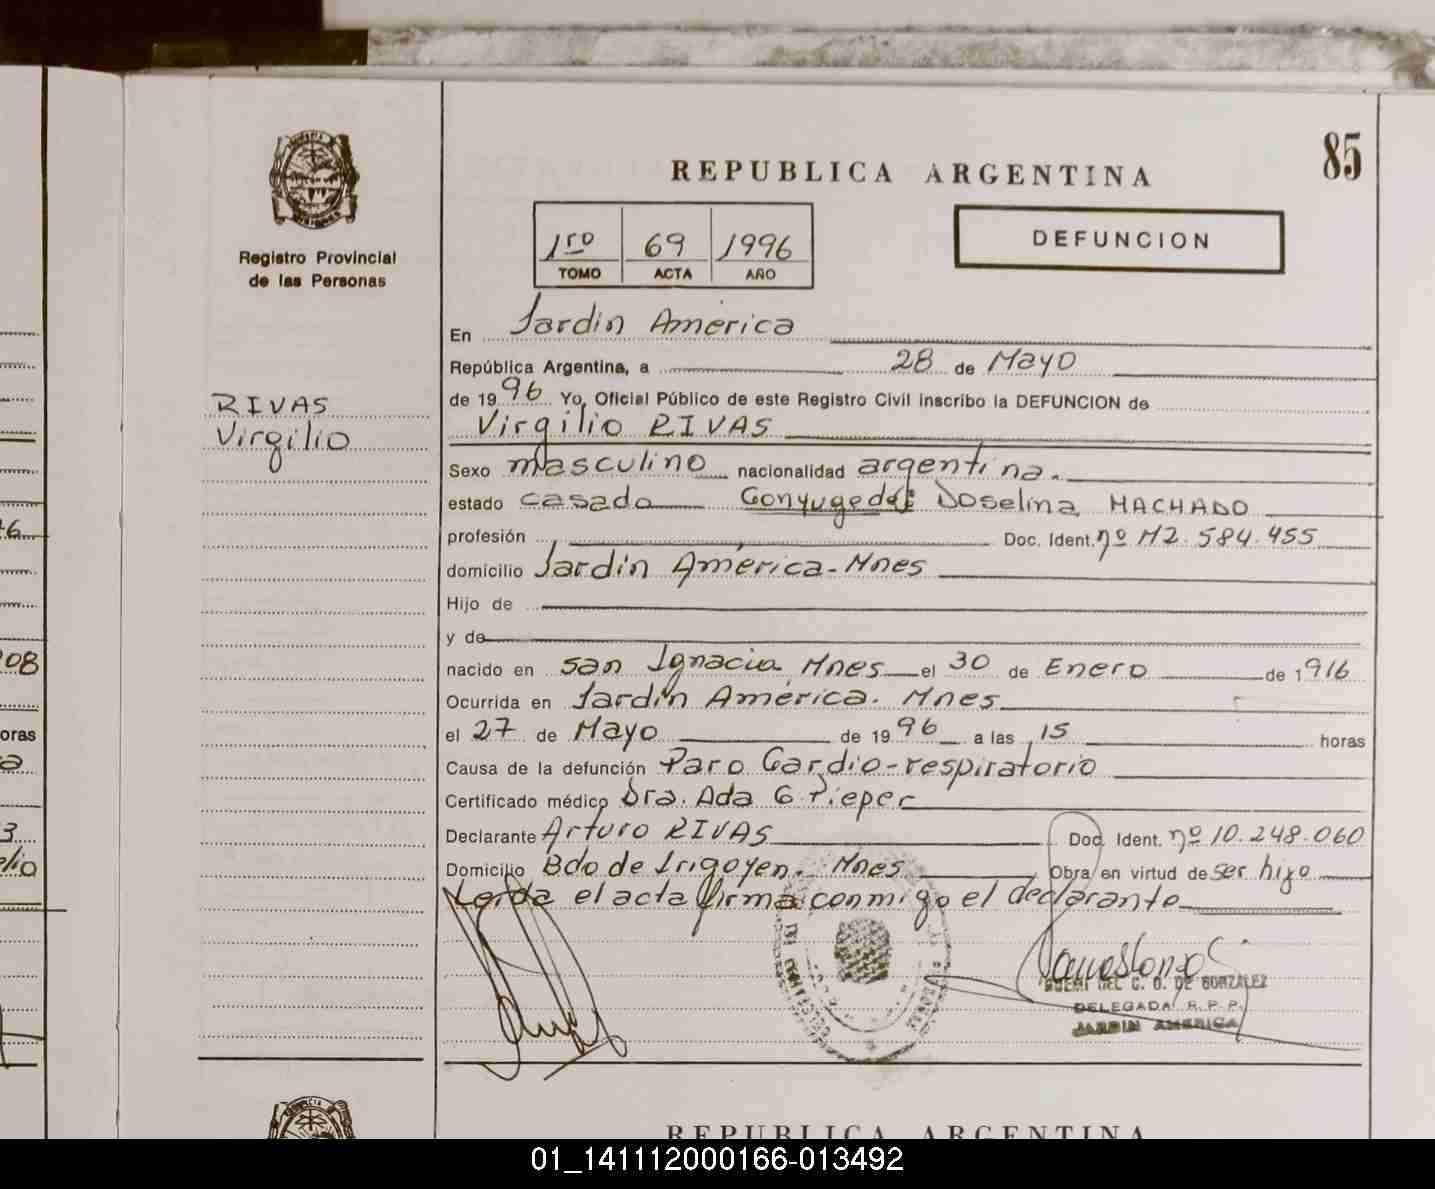 85
REPUBLICA ARGENTINA
1ro 69 1996
TOMO ACTA AÑO
DEFUNCION
Registro Provincial
de las Personas
RIVAS
Virgilio
En Jardin América
República Argentina, a 28 de Mayo
de 1996 Yo, Oficial Público de este Registro Civil inscribo la DEFUNCION de
Virgilio RIVAS
Sexo masculino nacionalidad argentina.
estado casado Conyuge de: Doselina MACHADO
profesión Doc. Ident. nº M2.584.455
domicilio Jardin América-Mnes
Hijo de
y de
nacido en San Ignacio Mnes el 30 de Enero de 1916
Ocurrida en Jardin América. Mnes
el 27 de Mayo de 1996 a las 15 horas
Causa de la defunción Paro Cardio-respiratorio
Certificado médico Dra. Ada G. Pieper
Declarante Arturo RIVAS Doc. Ident. nº 10.248.060
Domicilio Bdo de Irigoyen. Mnes Obra en virtud de ser hijo
Leida el acta firma conmigo el declarante
DEL C. O. DE GONZALEZ
DELEGADA R. P. P.
JARDIN AMERICA
REPUBLICA ARGENTINA
01_141112000166-013492